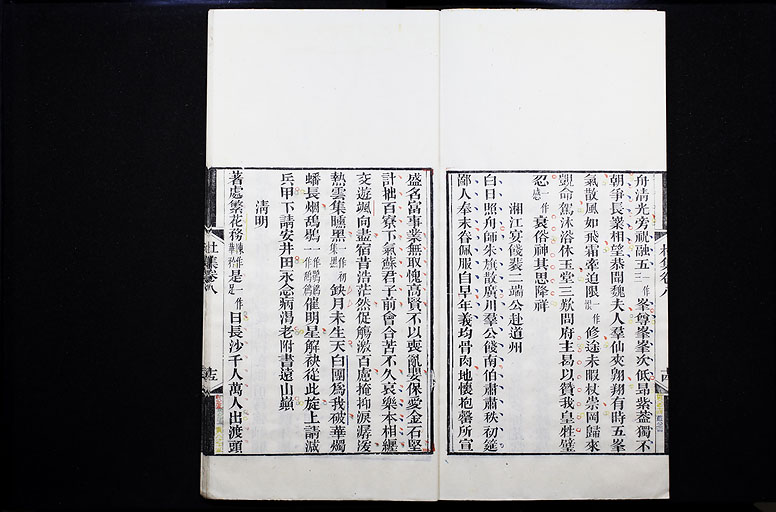 舟清光旁視融五一作三峯尊峯峯次低昂紫蓋獨不
朝爭長嶪相望恭聞魏夫人羣仙夾翱翔有時五峯
氣散風如飛霜牽迫限一作恨修途未暇杖崇岡歸來
覬命駕沐浴休玉堂三歎問府主曷以贊我皇牲璧
忍一作感衰俗神其思降祥
湘江宴餞裴二端公赴道州
白日照舟師朱旗散廣川羣公餞南伯肅肅秩初筵
鄙人奉末眷佩服自早年義均骨肉地懷抱罄所宣
盛名富事業無取愧高賢不以喪亂嬰保愛金石堅
計拙百寮下氣蘇君子前會合苦不久哀樂本相纏
交遊颯向盡宿昔浩茫然促觴激百慮掩抑淚潺湲
熱雲集曛黑一作初集黑缺月未生天白團為我破華燭
蟠長烟鴰鶡催明星解袂從此旋上請減
兵甲下請安井田永念病渴老附書遠山巔
清明
著處繁花務是一作足日長沙千人萬人出渡頭
杜集卷八